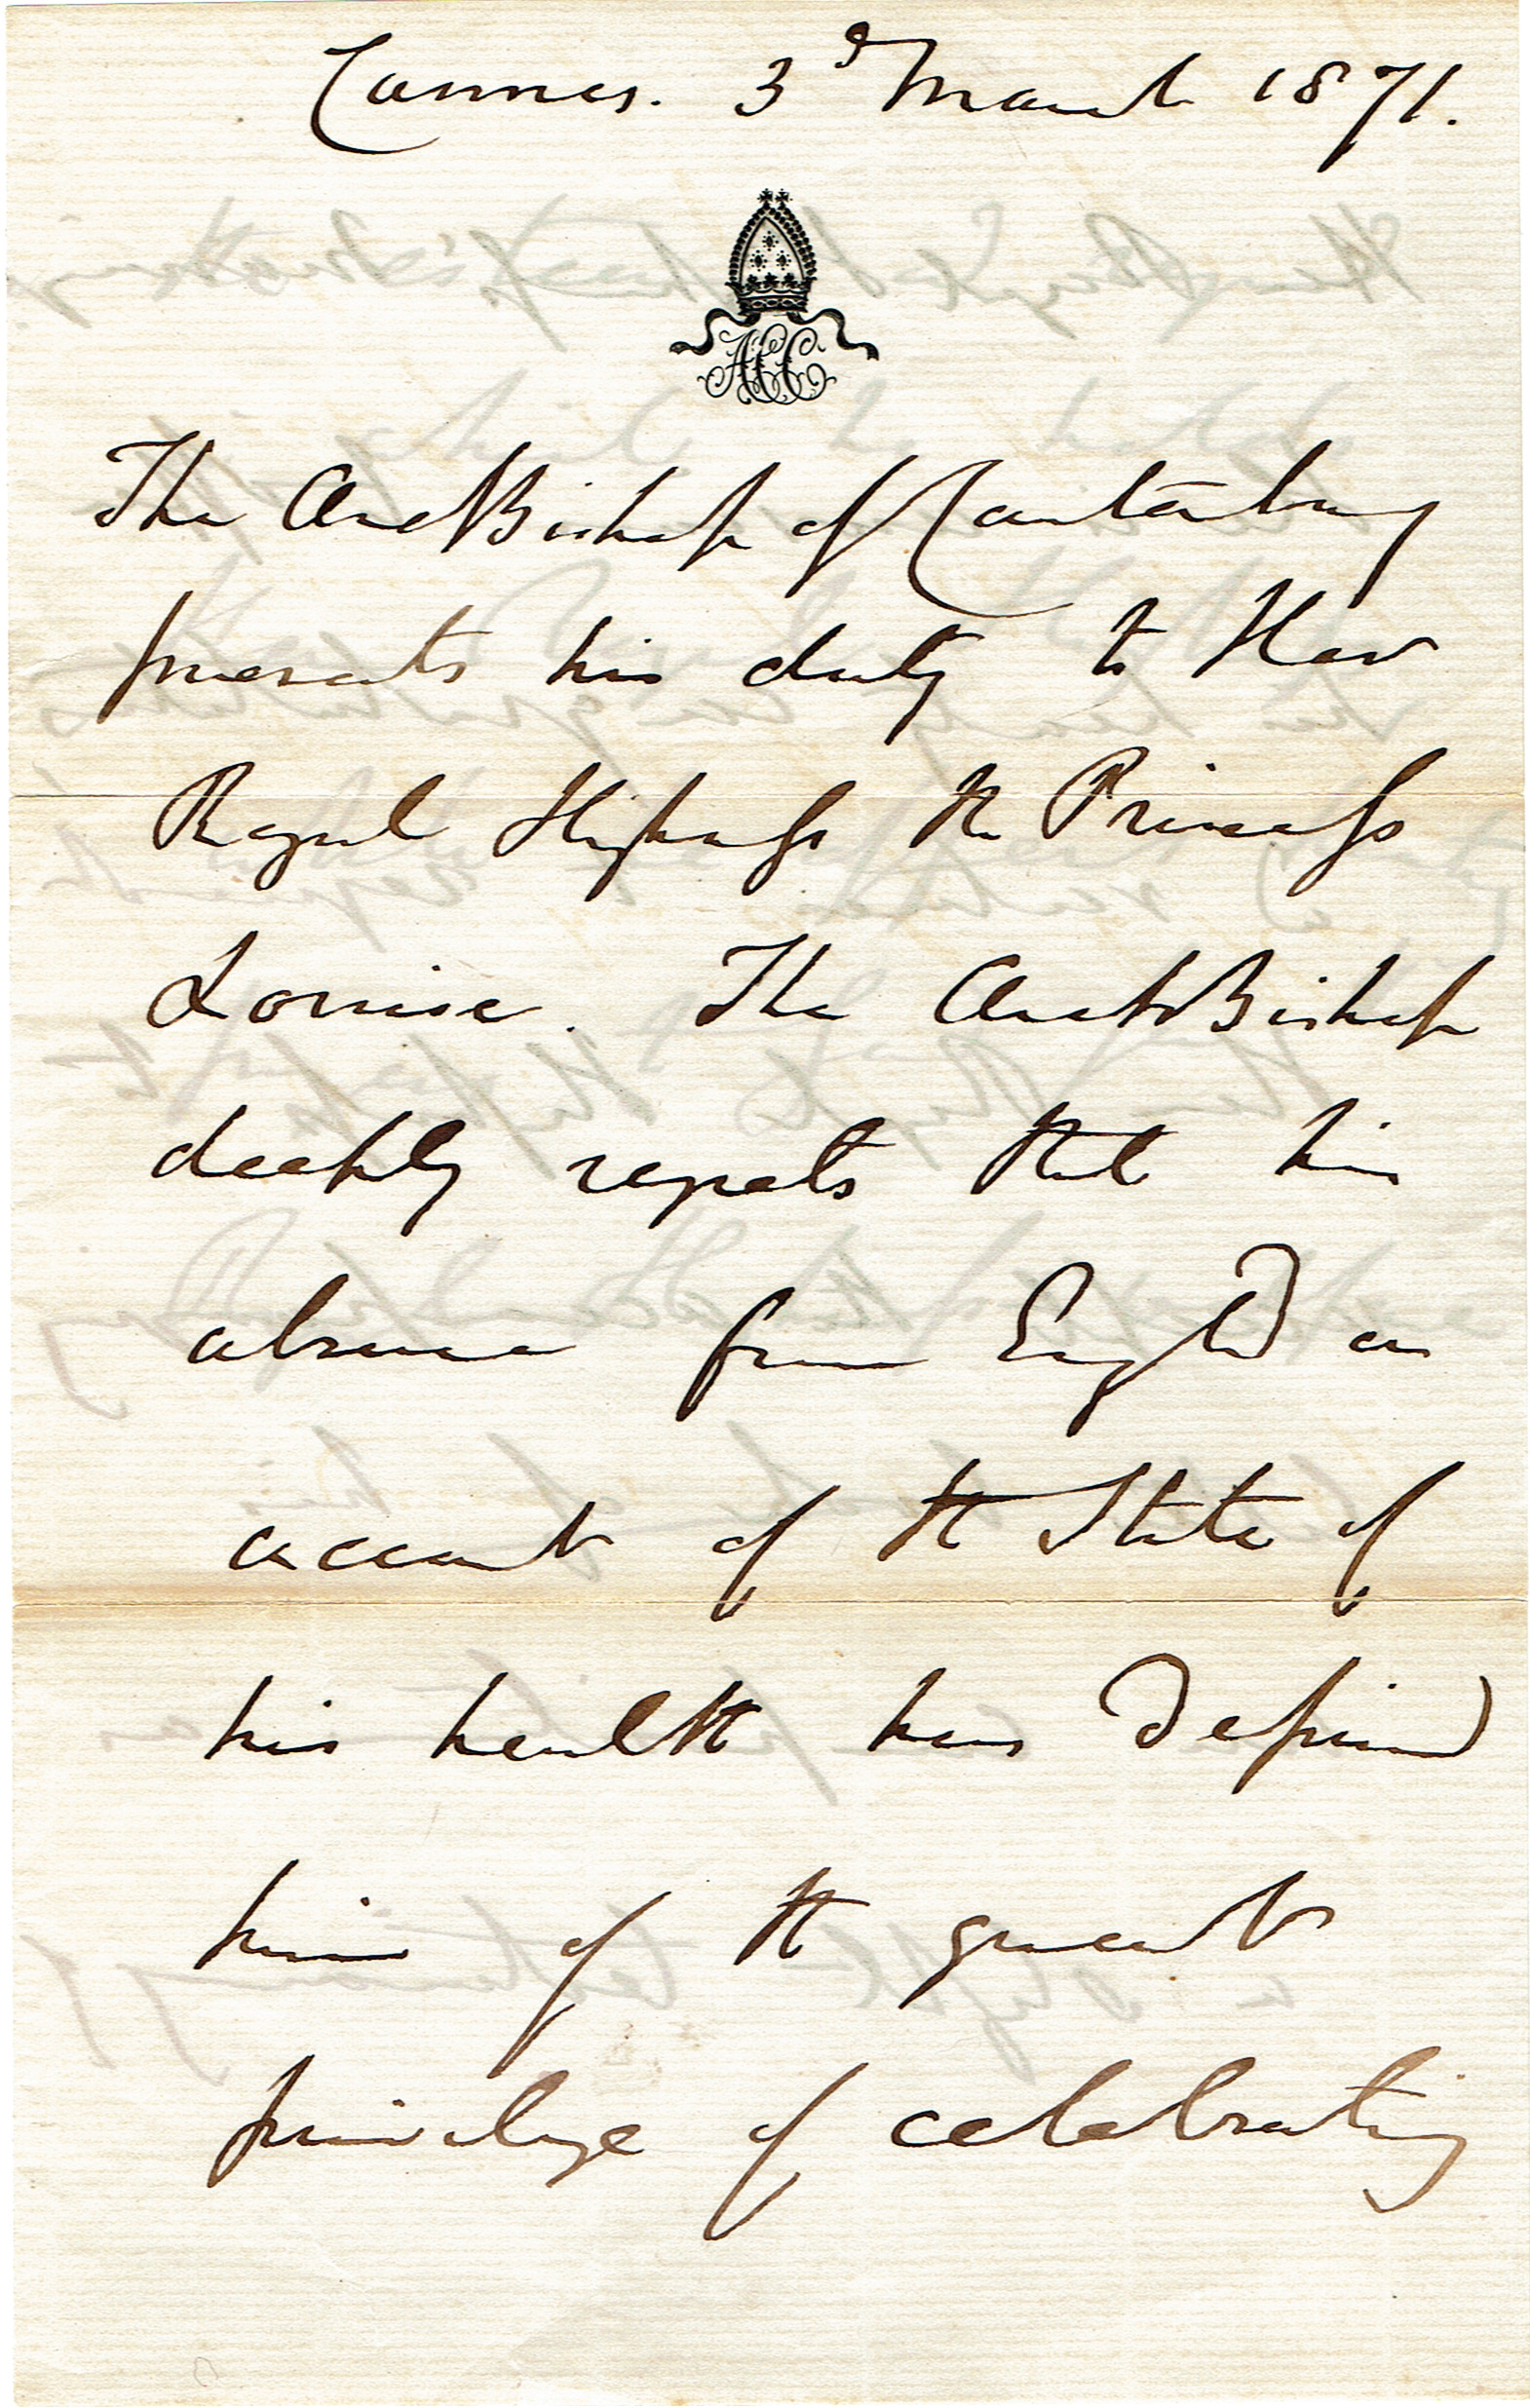 Cannes. 3d March 1871.
ACC
The ArchBishop of Canterbury
presents his duty to Her
Royal Highness the Princess
Louise. The ArchBishop
deeply regrets that his
absence from England on
account of the State of
his health has deprived
him of the great
privilege of celebrating